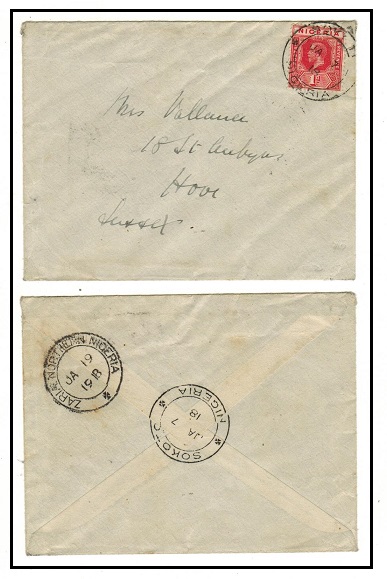 NIGERIA
JA
18
NIGERIA
1d
Mrs Vallance
18 St Aubyns
Hove
Sussex
ZARIA NORTHERN NIGERIA
JA 19
1918
SOKOTO
JA 7
18
NIGERIA